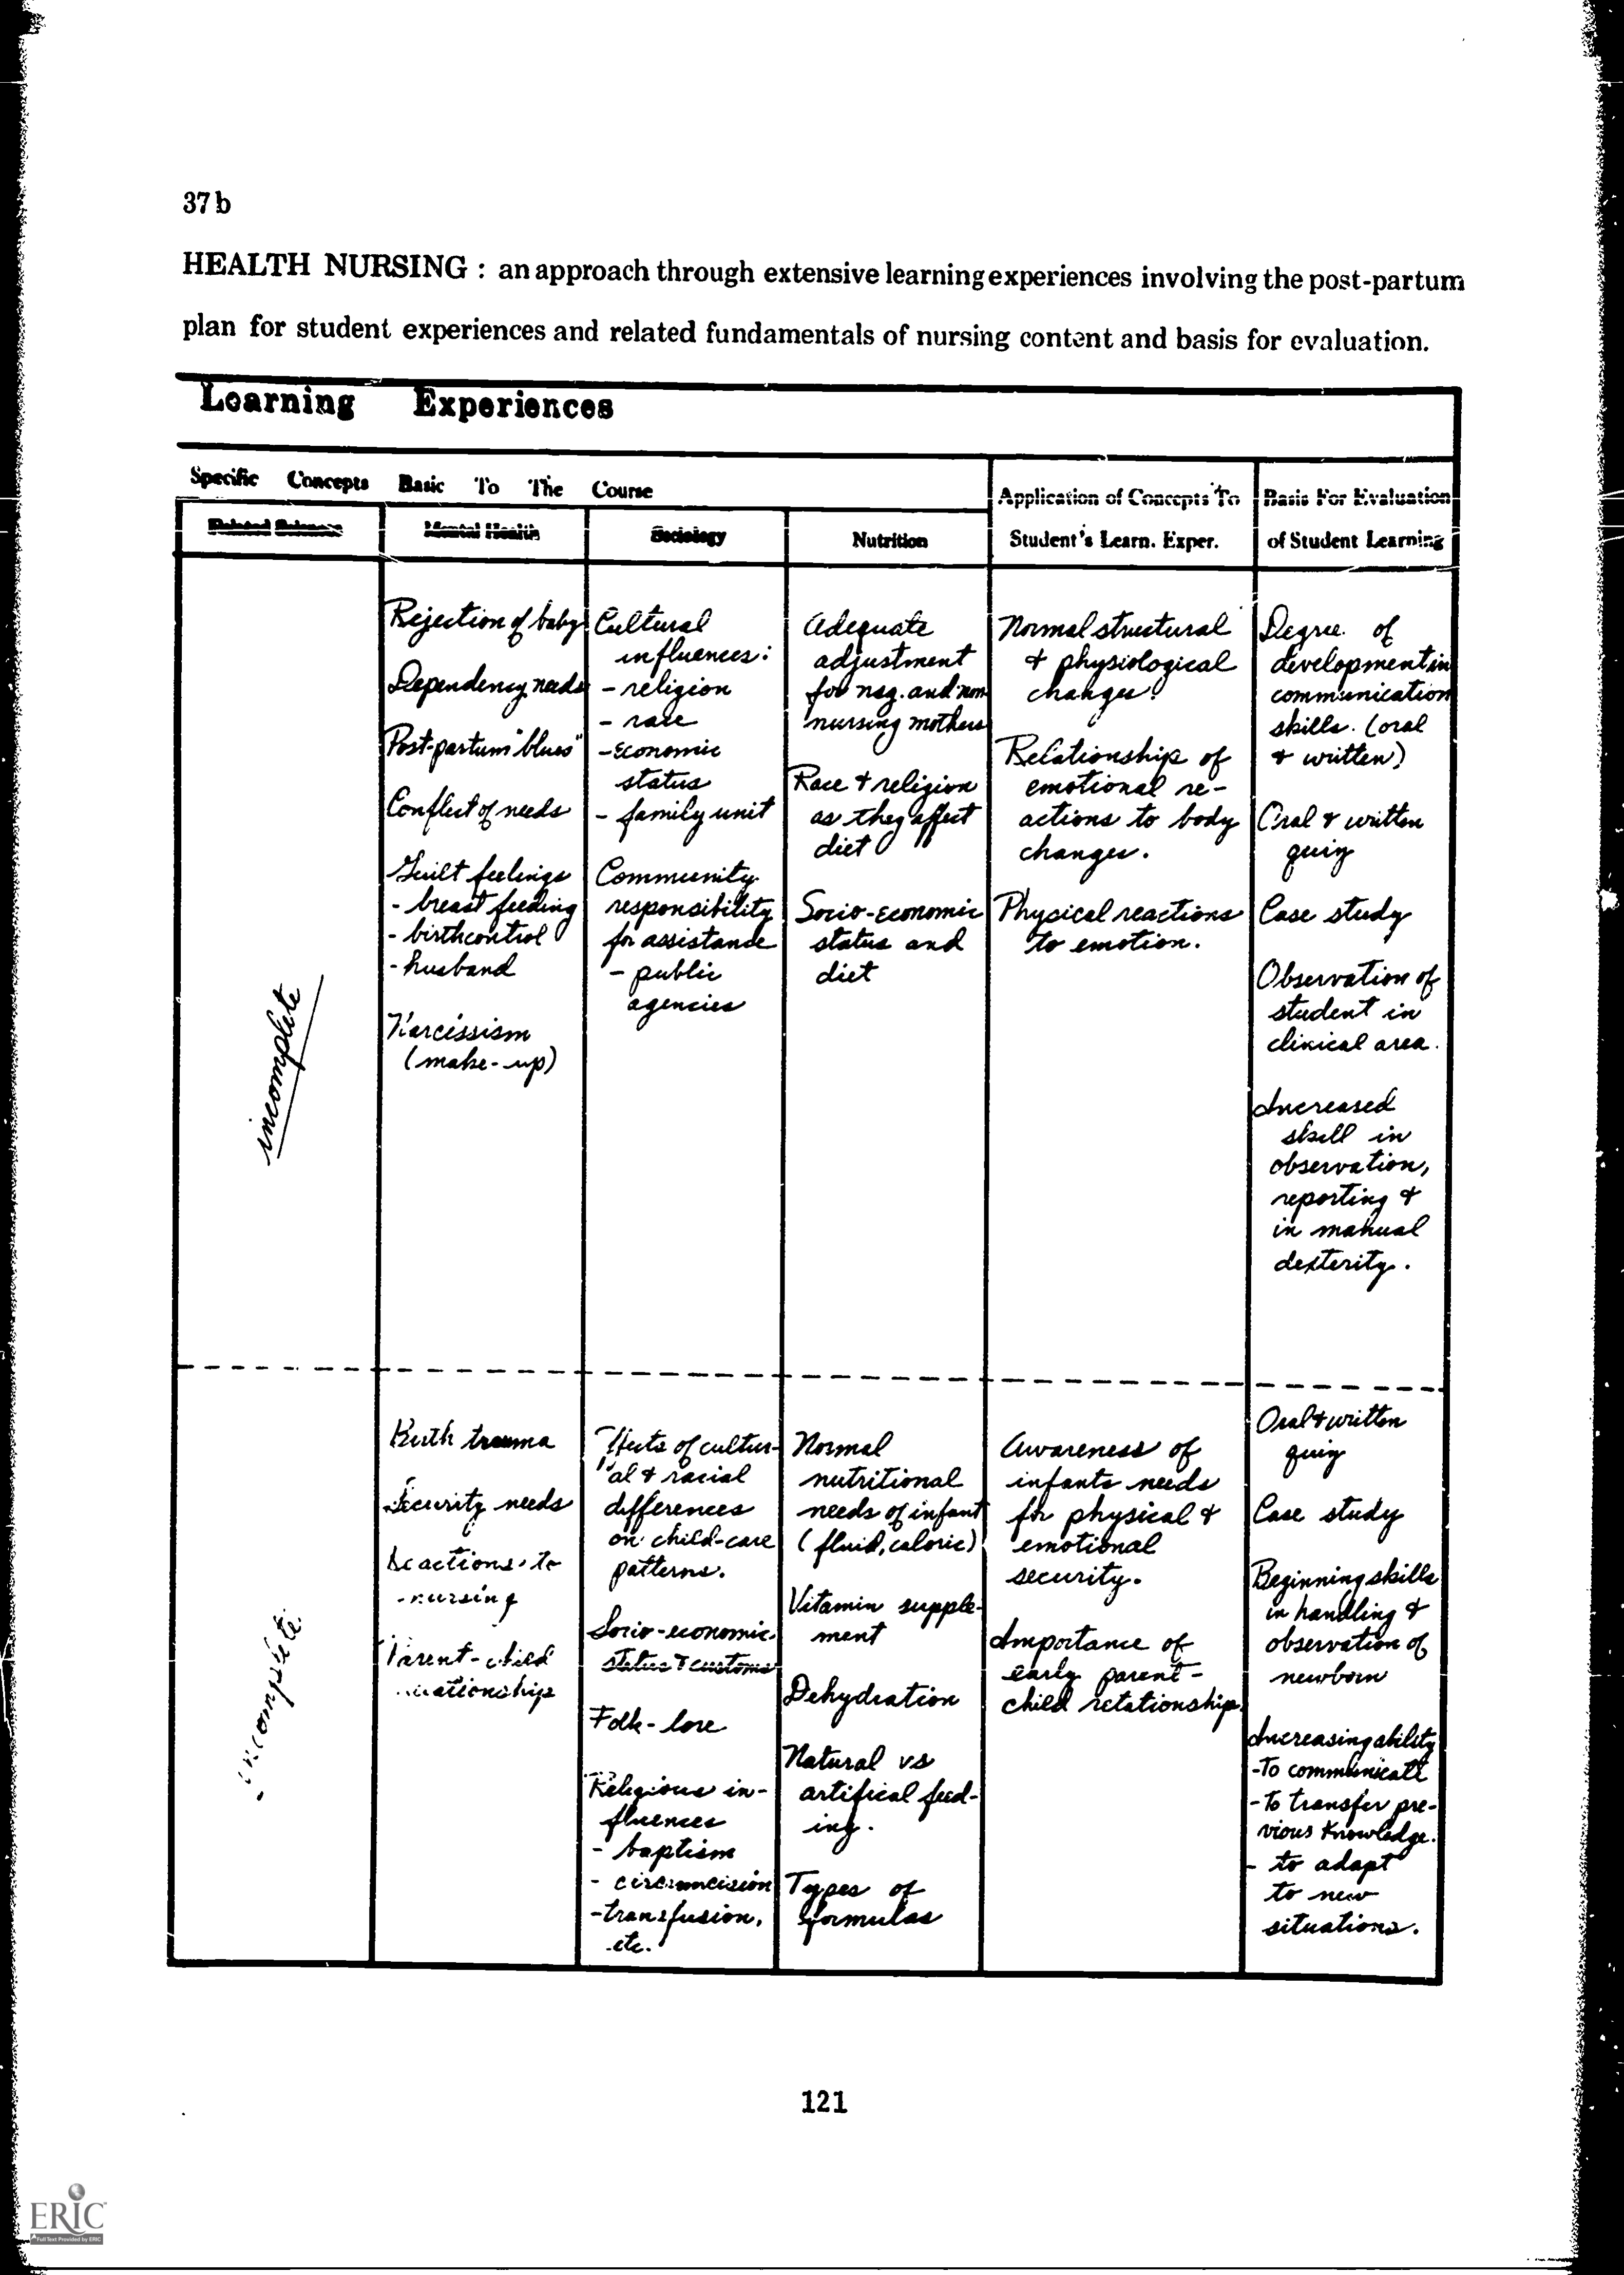 37b
HEALTH NURSING : an approach through extensive learning experiences involving the post-partum
plan for student experiences and related fundamentals of nursing content and basis for evaluation.
Learning Experiences
Specific Concepts Basic To The Course
Application of Concepts To
Student's Learn. Exper.
Basis For Evaluation
of Student Learning
Related Science
Mental Health
Sociology
Nutrition
incomplete
Rejection of baby
Dependency needs
Post-partum "blues"
Conflict of needs
Guilt feelings
- breast feeding
- birthcontrol
- husband
Narcissism
(make-up)
Cultural
influences:
- religion
- race
- Economic
status
- family unit
Community
responsibility
for assistance
- public
agencies
Adequate
adjustment
for nsg. and non
nursing mothers
Race & religion
as they affect
diet
Socio-economic
status and
diet
Normal structural
& physiological
changes.
Relationship of
emotional re-
actions to body
changes.
Physical reactions
to emotion.
Degree of
development in
communication
skills. (oral
& written)
Oral & written
quiz
Case study
Observation of
student in
clinical area.
Increased
skill in
observation,
reporting &
in manual
dexterity.
incomplete
Birth trauma
Security needs
Reactions to
nursing
Parent-child
relationship
Effects of cultur-
al & racial
differences
on child-care
patterns.
Socio-economic
status & customs
Folk-lore
Religious in-
fluences
- baptism
- circumcision
- transfusion,
etc.
Normal
nutritional
needs of infant
(fluid, caloric)
Vitamin supple-
ment
Dehydration
Natural vs
artifical feed-
ing.
Types of
formulas
Awareness of
infants needs
for physical &
emotional
security.
Importance of
early parent-
child relationship.
Oral & written
quiz
Case study
Beginning skills
in handling &
observation of
newborn
Increasing ability
- To communicate
- To transfer pre-
vious knowledge.
- to adapt
to new
situations.
121
ERIC
Full Text Provided by ERIC